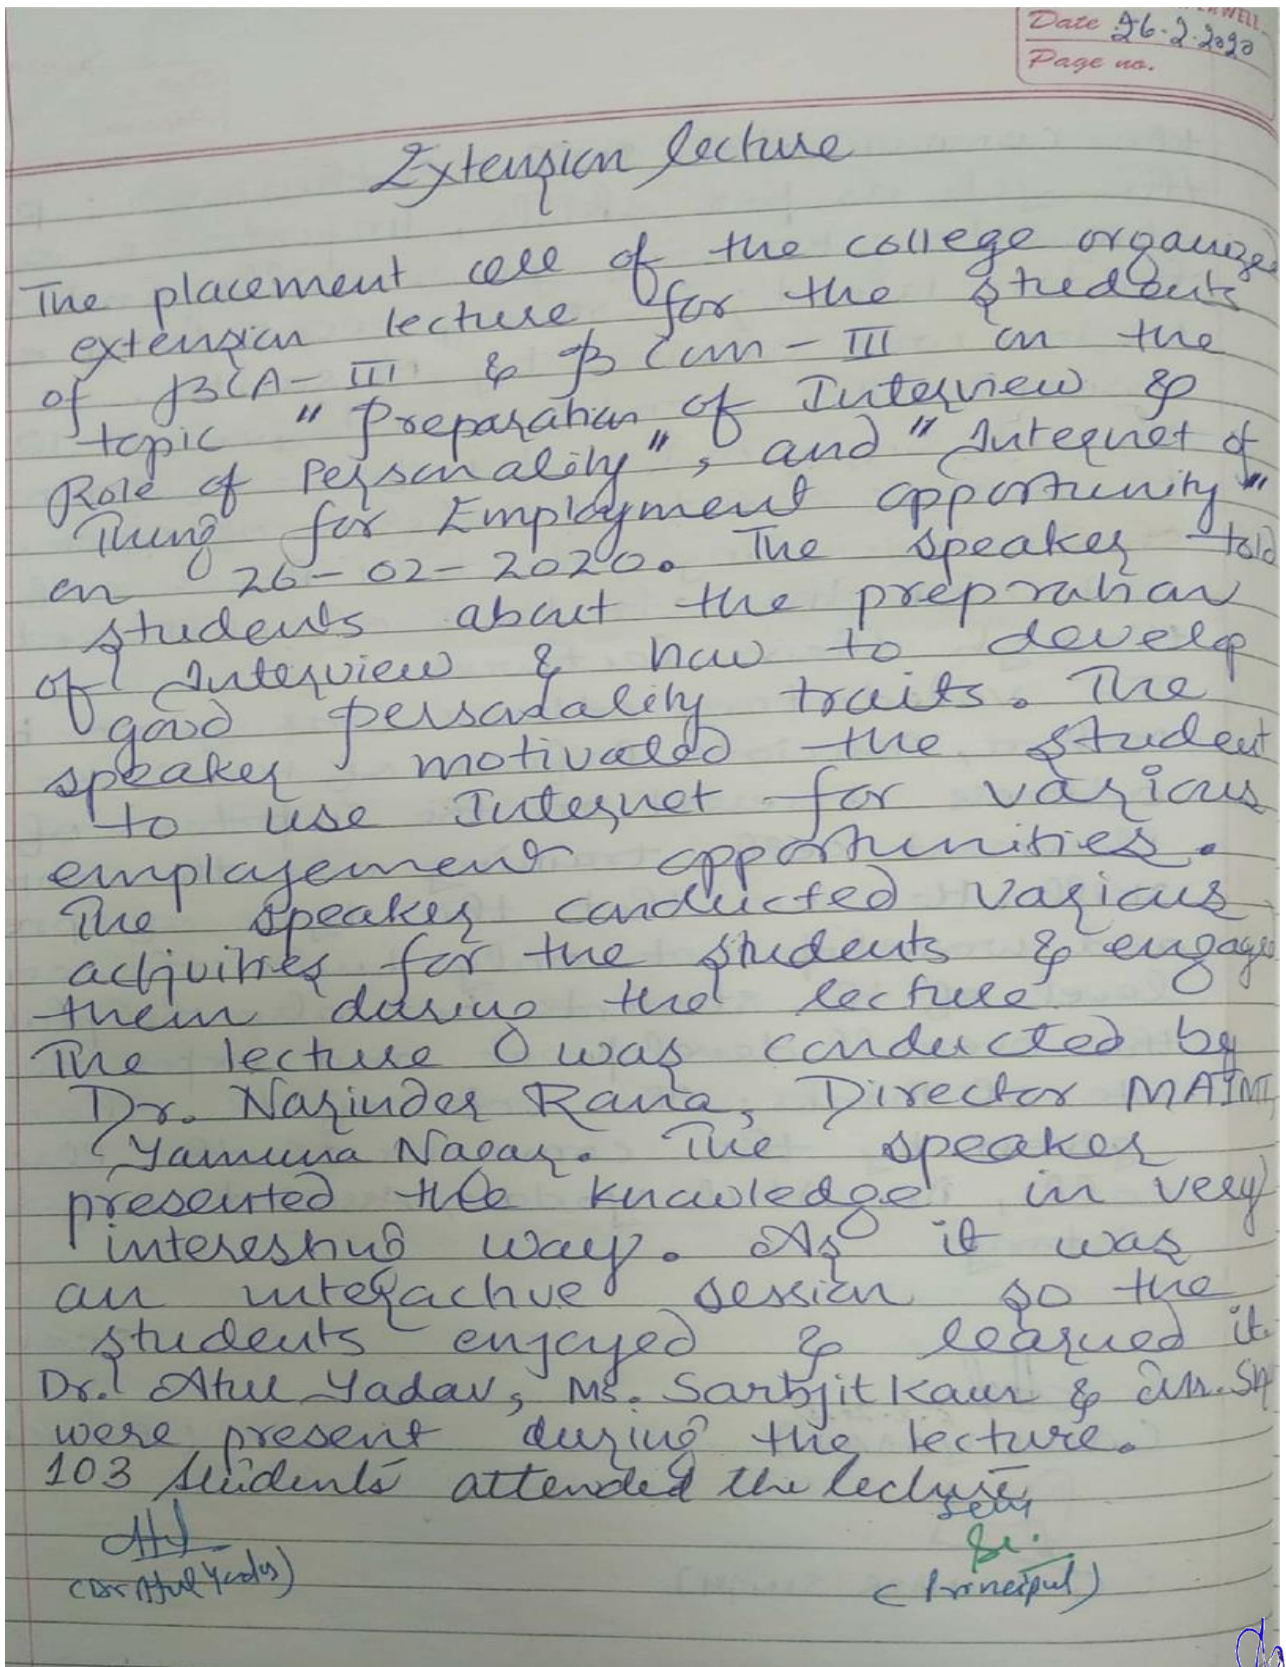 Date 26-2-2020
Page no.
Extension lecture
The placement cell of the college organize
extension lecture for the students
of BCA-III & B Com-III on the
topic "Preparation of Interview &
Role of Personality", and "Internet of
Thing for Employment opportunity"
on 26-02-2020. The speaker told
students about the prepration
of Interview & how to develop
good personality traits. The
speaker motivated the student
to use Internet for various
employement opportunities.
The speaker conducted various
activities for the students & engage
them during the lecture
The lecture was conducted by
Dr. Narinder Rana, Director MAIMT
Yamuna Nagar. The speaker
presented the knowledge in very
interesting way. As it was
an interactive session so the
students enjoyed & learned it
Dr. Atul Yadav, Ms. Sarbjit Kaur &
were present during the lecture.
103 students attended the lecture
(Dr Atul Yadav)
(Principal)